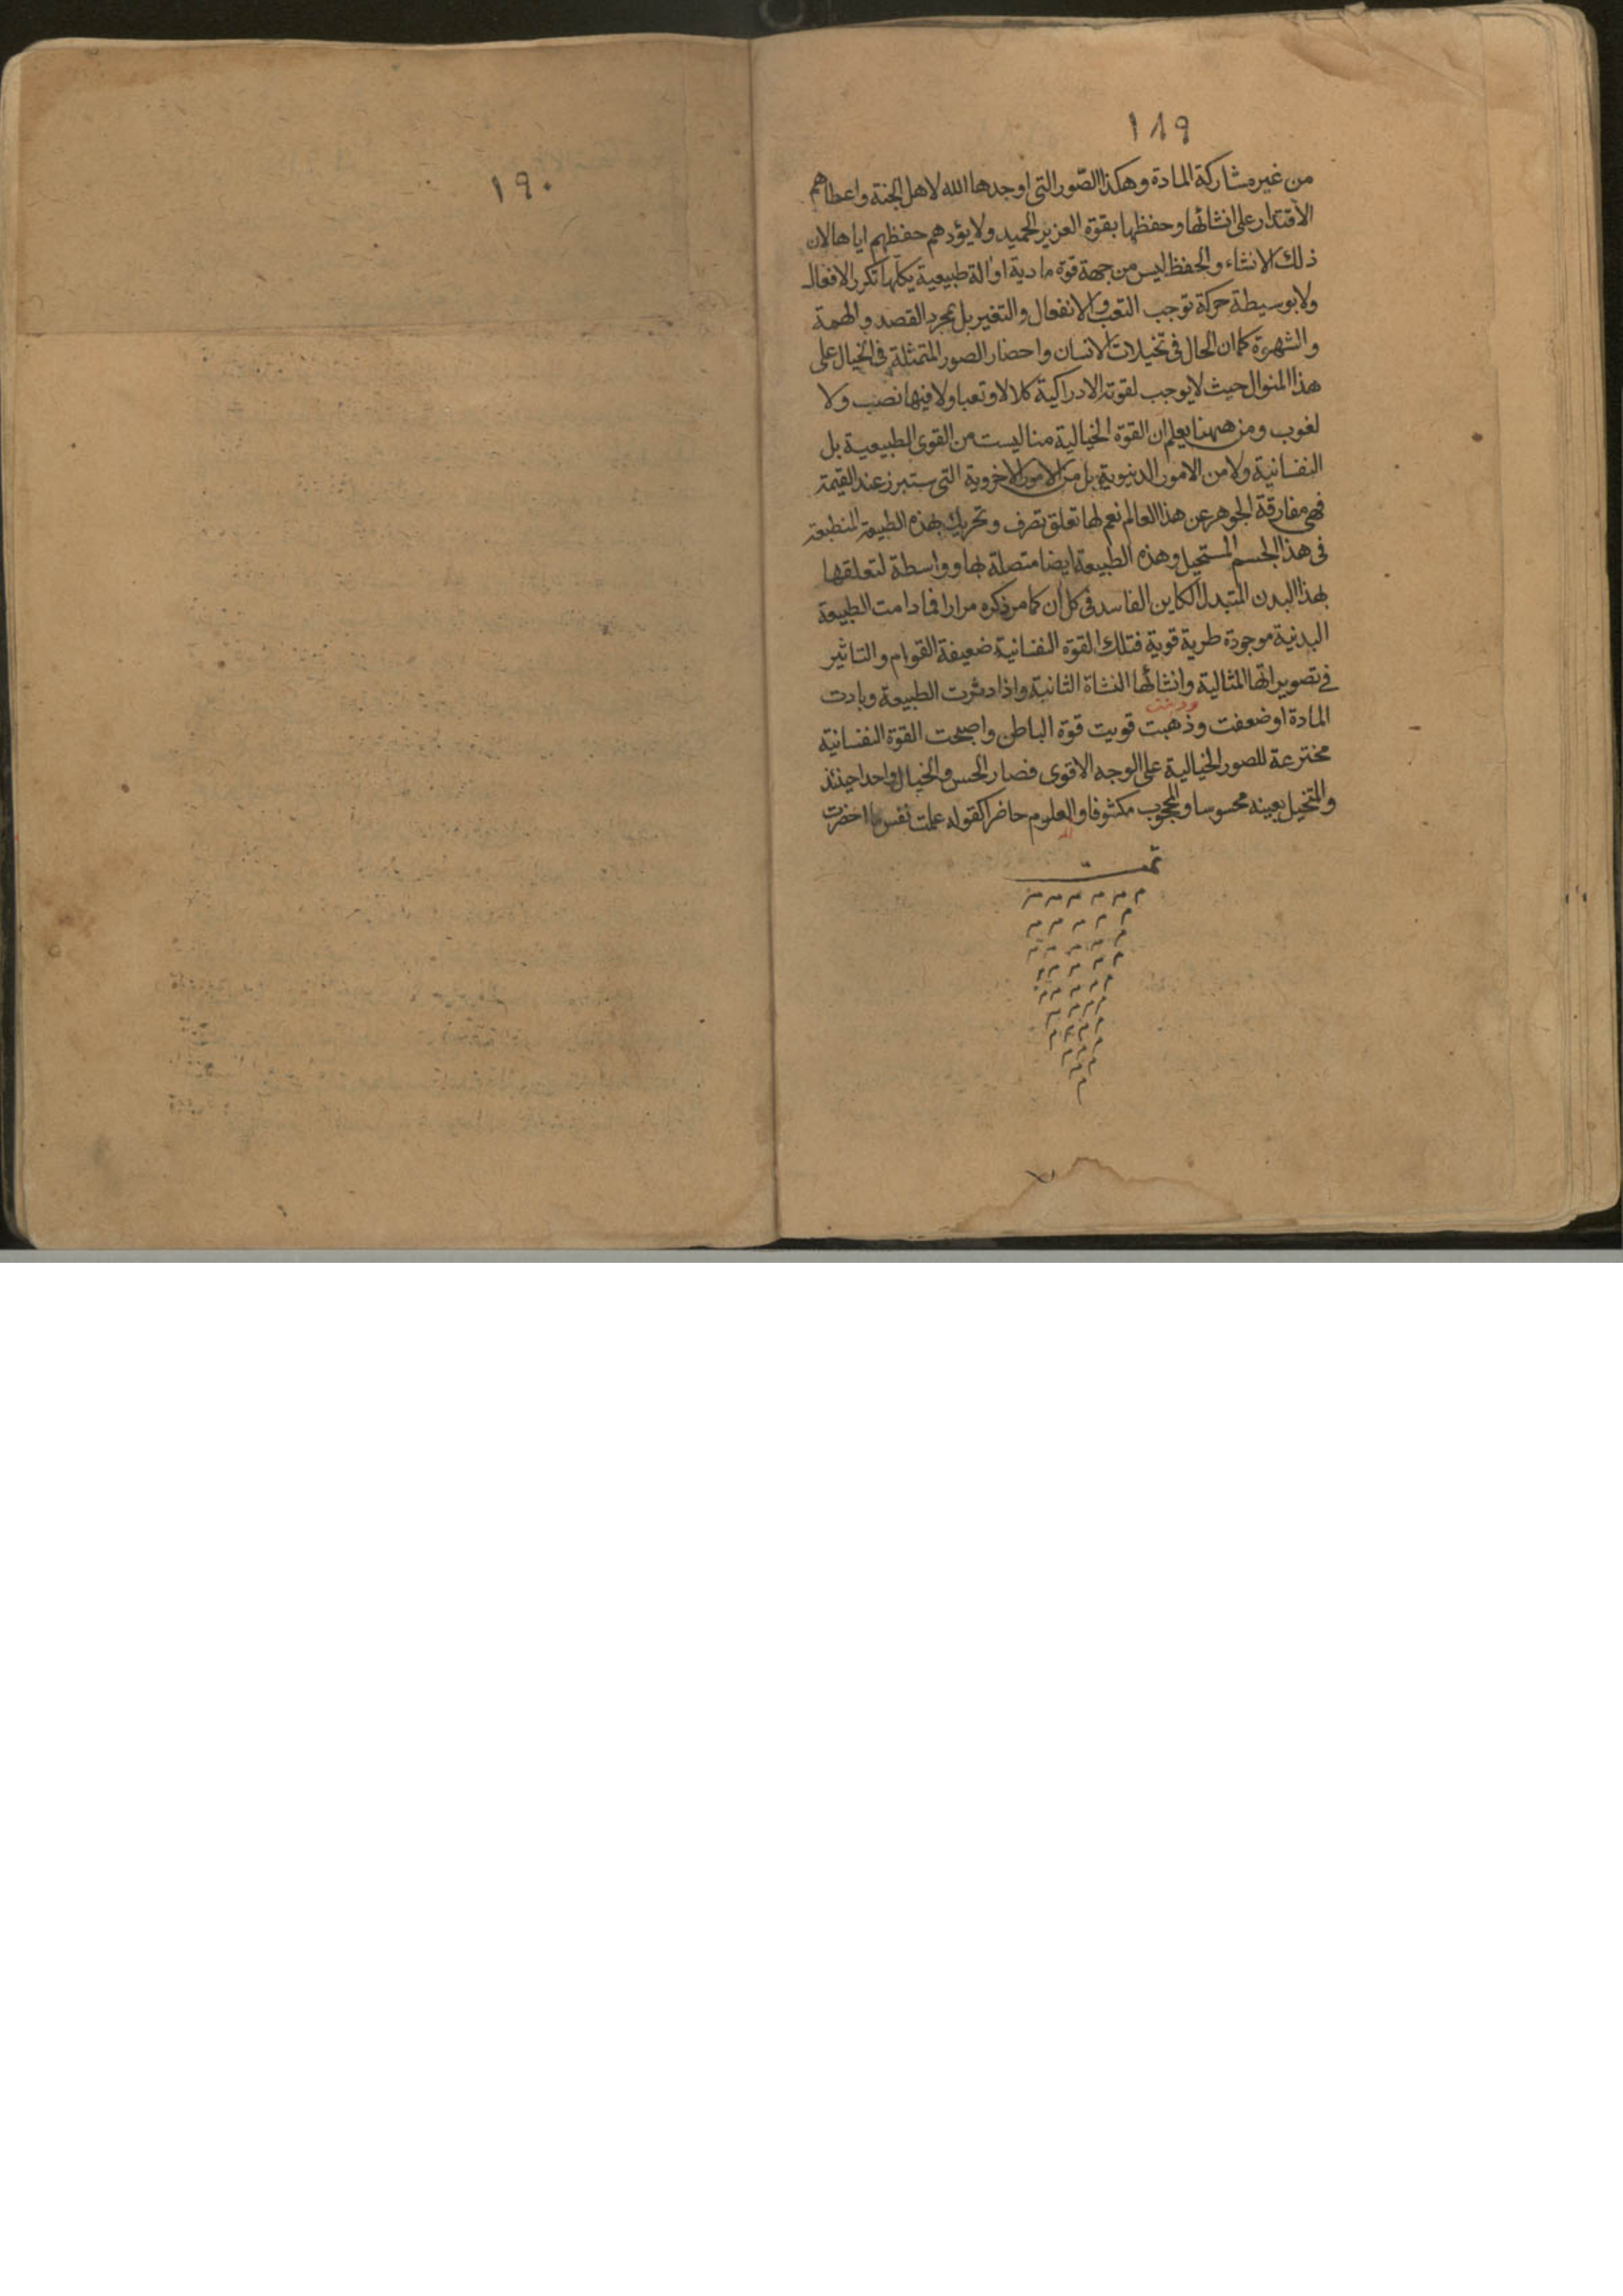 ١٨٩
من غير مشاركة المادة وهكذا الصّور التى اوجدها الله لاهل الجنة واعطاهم
الاقتدار على انشائها وحفظها بقوة العزيز الحميد ولا يؤدهم حفظهم اياها لان
ذلك الانشاء والحفظ ليس من جهة قوة مادية او الة طبيعية يكلّها تكرر الافعال
ولا بوسيطة حركة توجب التعب والانفعال والتغير بل بمجرد القصد والهمة
والشهوة كما ان الحال فى تخيلات الانسان واحضار الصور المتمثلة فى الخيال على
هذا المنوال حيث لا يوجب لقوته الادراكية كلالا وتعبا ولا فيها نصب ولا
لغوب ومن ههنا يعلم ان القوة الخيالية منا ليست من القوى الطبيعية بل
النفسانية ولا من الامور الدنيوية بل من الامور الاخروية التى ستبرز عند القيمة
فهى مفارقة الجوهر عن هذا العالم نعم لها تعلق تصرف وتحريك بهذه الطبيعة المنطبعة
فى هذا الجسم المستحيل وهذه الطبيعة ايضا متصلة بها وواسطة لتعلقها
بهذا البدن المتبدل الكاين الفاسد فى كل ان كما مر ذكره مرارا فما دامت الطبيعة
البدنية موجودة طرية قوية فتلك القوة النفسانية ضعيفة القوام والتاثير
فى تصويراتها المثالية وانشائها النشاة الثانية واذا دثرت الطبيعة وبادت
المادة او ضعفت وذهبت قويت قوة الباطن واصبحت القوة النفسانية
مخترعة للصور الخيالية على الوجه الاقوى فصار الحس والخيال واحدا حينئذ
والمتخيل بعينه محسوسا والمحجوب مكشوفا والعلوم حاضرا كقوله علمت نفس ما احضرت
تمت
م م م م م م
م م م م م
م م م م م
م م م م م
م م م م م
م م م م
م م م م
م م م
م م
م
١٩٠